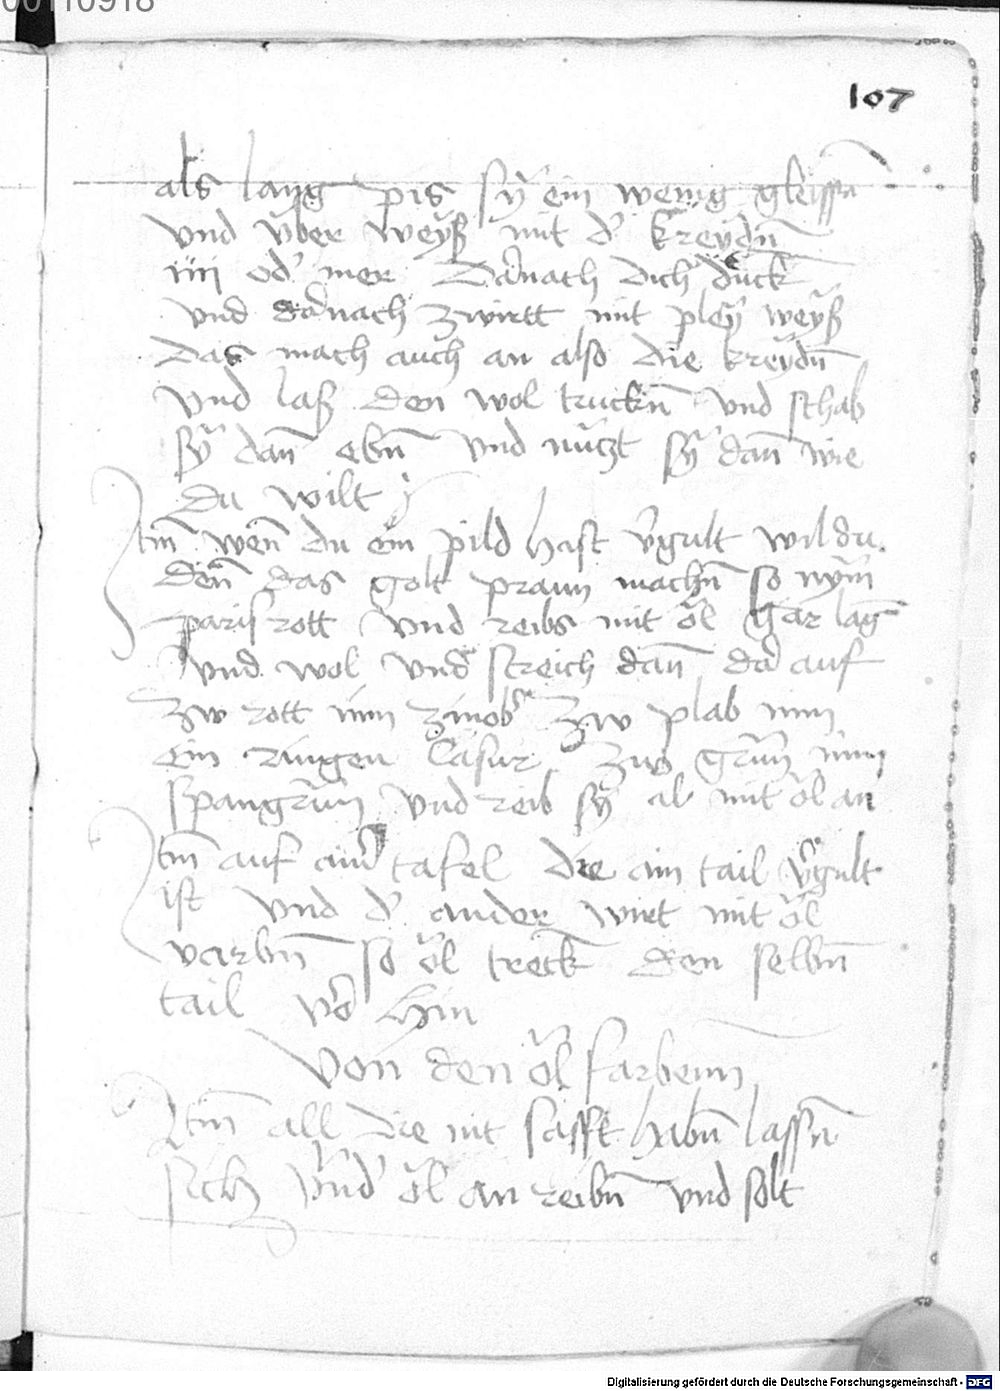 00110918
107
als lang pis sy ein wenig gleissn
vnd vber weyß mit d' kreydn
iiij od' mer Darnach dich duck
vnd darnach zwirtt mit pley weyß
Das mach auch an also die kreydn
vnd laß den wol truckn vnd schab
sy dan ebn vnd nutzt sy dan wie
du wilt
Itm wen du ein pild hast v'gult wildu
den das golt praun machn so nym
parisrott vnd reibs mit öl gar lag
vnd wol vnd streich dan dar auf
zw rott nim zinob' zw plab nim
ein ringen lasur zw grun nim
spangrun vnd reib sy al mit öl an
Itm auf ain' tafel die ain tail v'gult
ist vnd d' ander wirt mit öl
varbn so öl treck den selbn
tail vor hin
Von den öl farbenn
Itm all die nit safft habn lassn
sich vnd' öl an reibn vnd solt
Digitalisierung gefördert durch die Deutsche Forschungsgemeinschaft - DFG